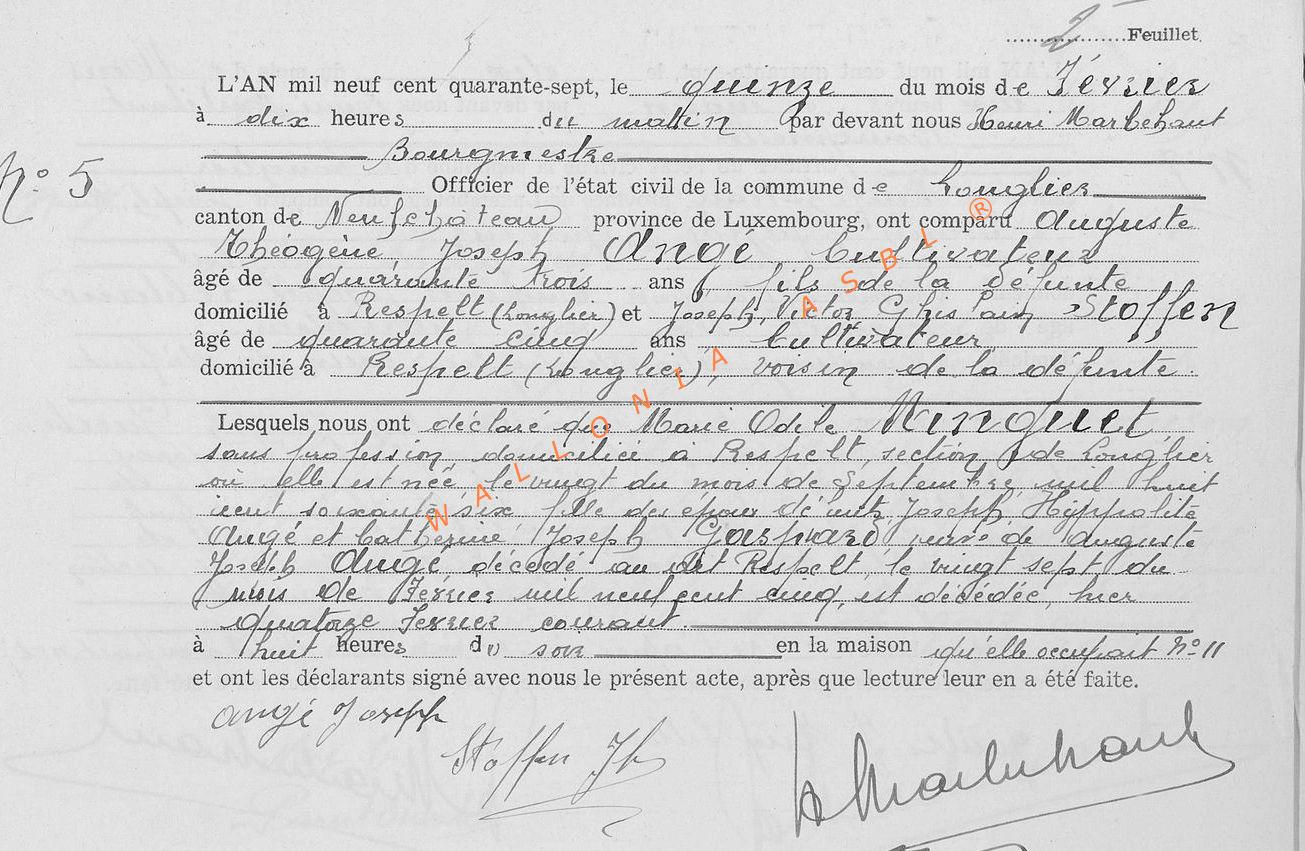 2 Feuillet.
L'AN mil neuf cent quarante-sept, le quinze du mois de Février
à dix heures du matin par devant nous Henri Marbehant
Bourgmestre
N° 5
Officier de l'état civil de la commune de Longlier
canton de Neufchâteau province de Luxembourg, ont comparu Auguste
Théogène, Joseph Angé Cultivateur
âgé de quarante trois ans, fils de la défunte
domicilié à Respelt (Longlier) et Joseph, Victor Ghislain Stoffen
âgé de quarante cinq ans Cultivateur
domicilié à Respelt (Longlier), voisin de la défunte.
Lesquels nous ont déclaré que Marie Odile Minguet
sans profession domicilie à Respelt, section de Longlier
où elle est née le vingt du mois de Septembre mil huit
cent soixante six fille des époux défunts Joseph Hyppolite
Angé et Catherine Joseph Gaspard veuve de Auguste
Joseph Angé décédé au dit Respelt, le vingt sept du
mois de Février mil neuf cent cinq, est décédée, hier
quatorze Février courant.
à huit heures du soir en la maison qu'elle occupait N° 11
et ont les déclarants signé avec nous le présent acte, après que lecture leur en a été faite.
Angé Joseph
Stoffen Jh
H Marbehant
WALLONIA ASBL ®